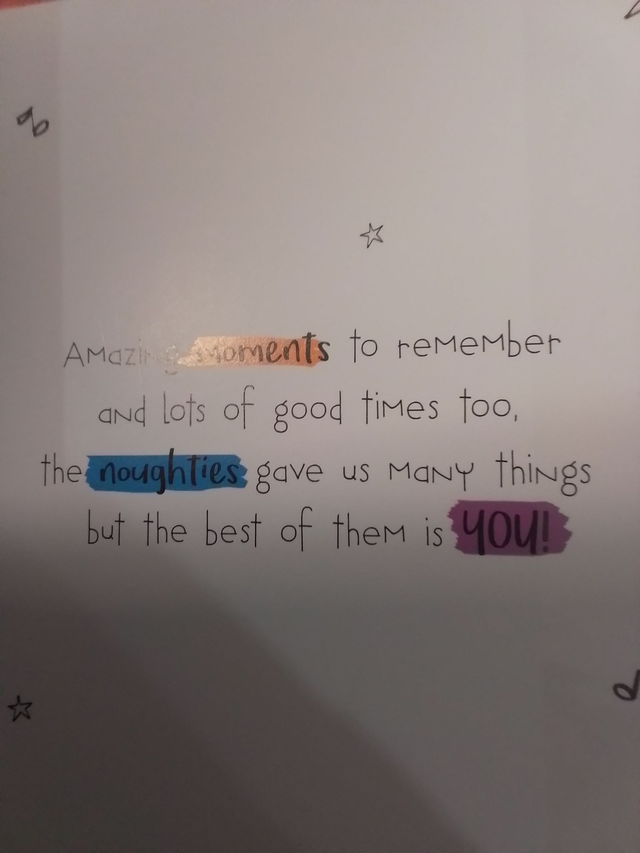 Amazing moments to remember
and lots of good times too,
the noughties gave us many things
but the best of them is YOU!